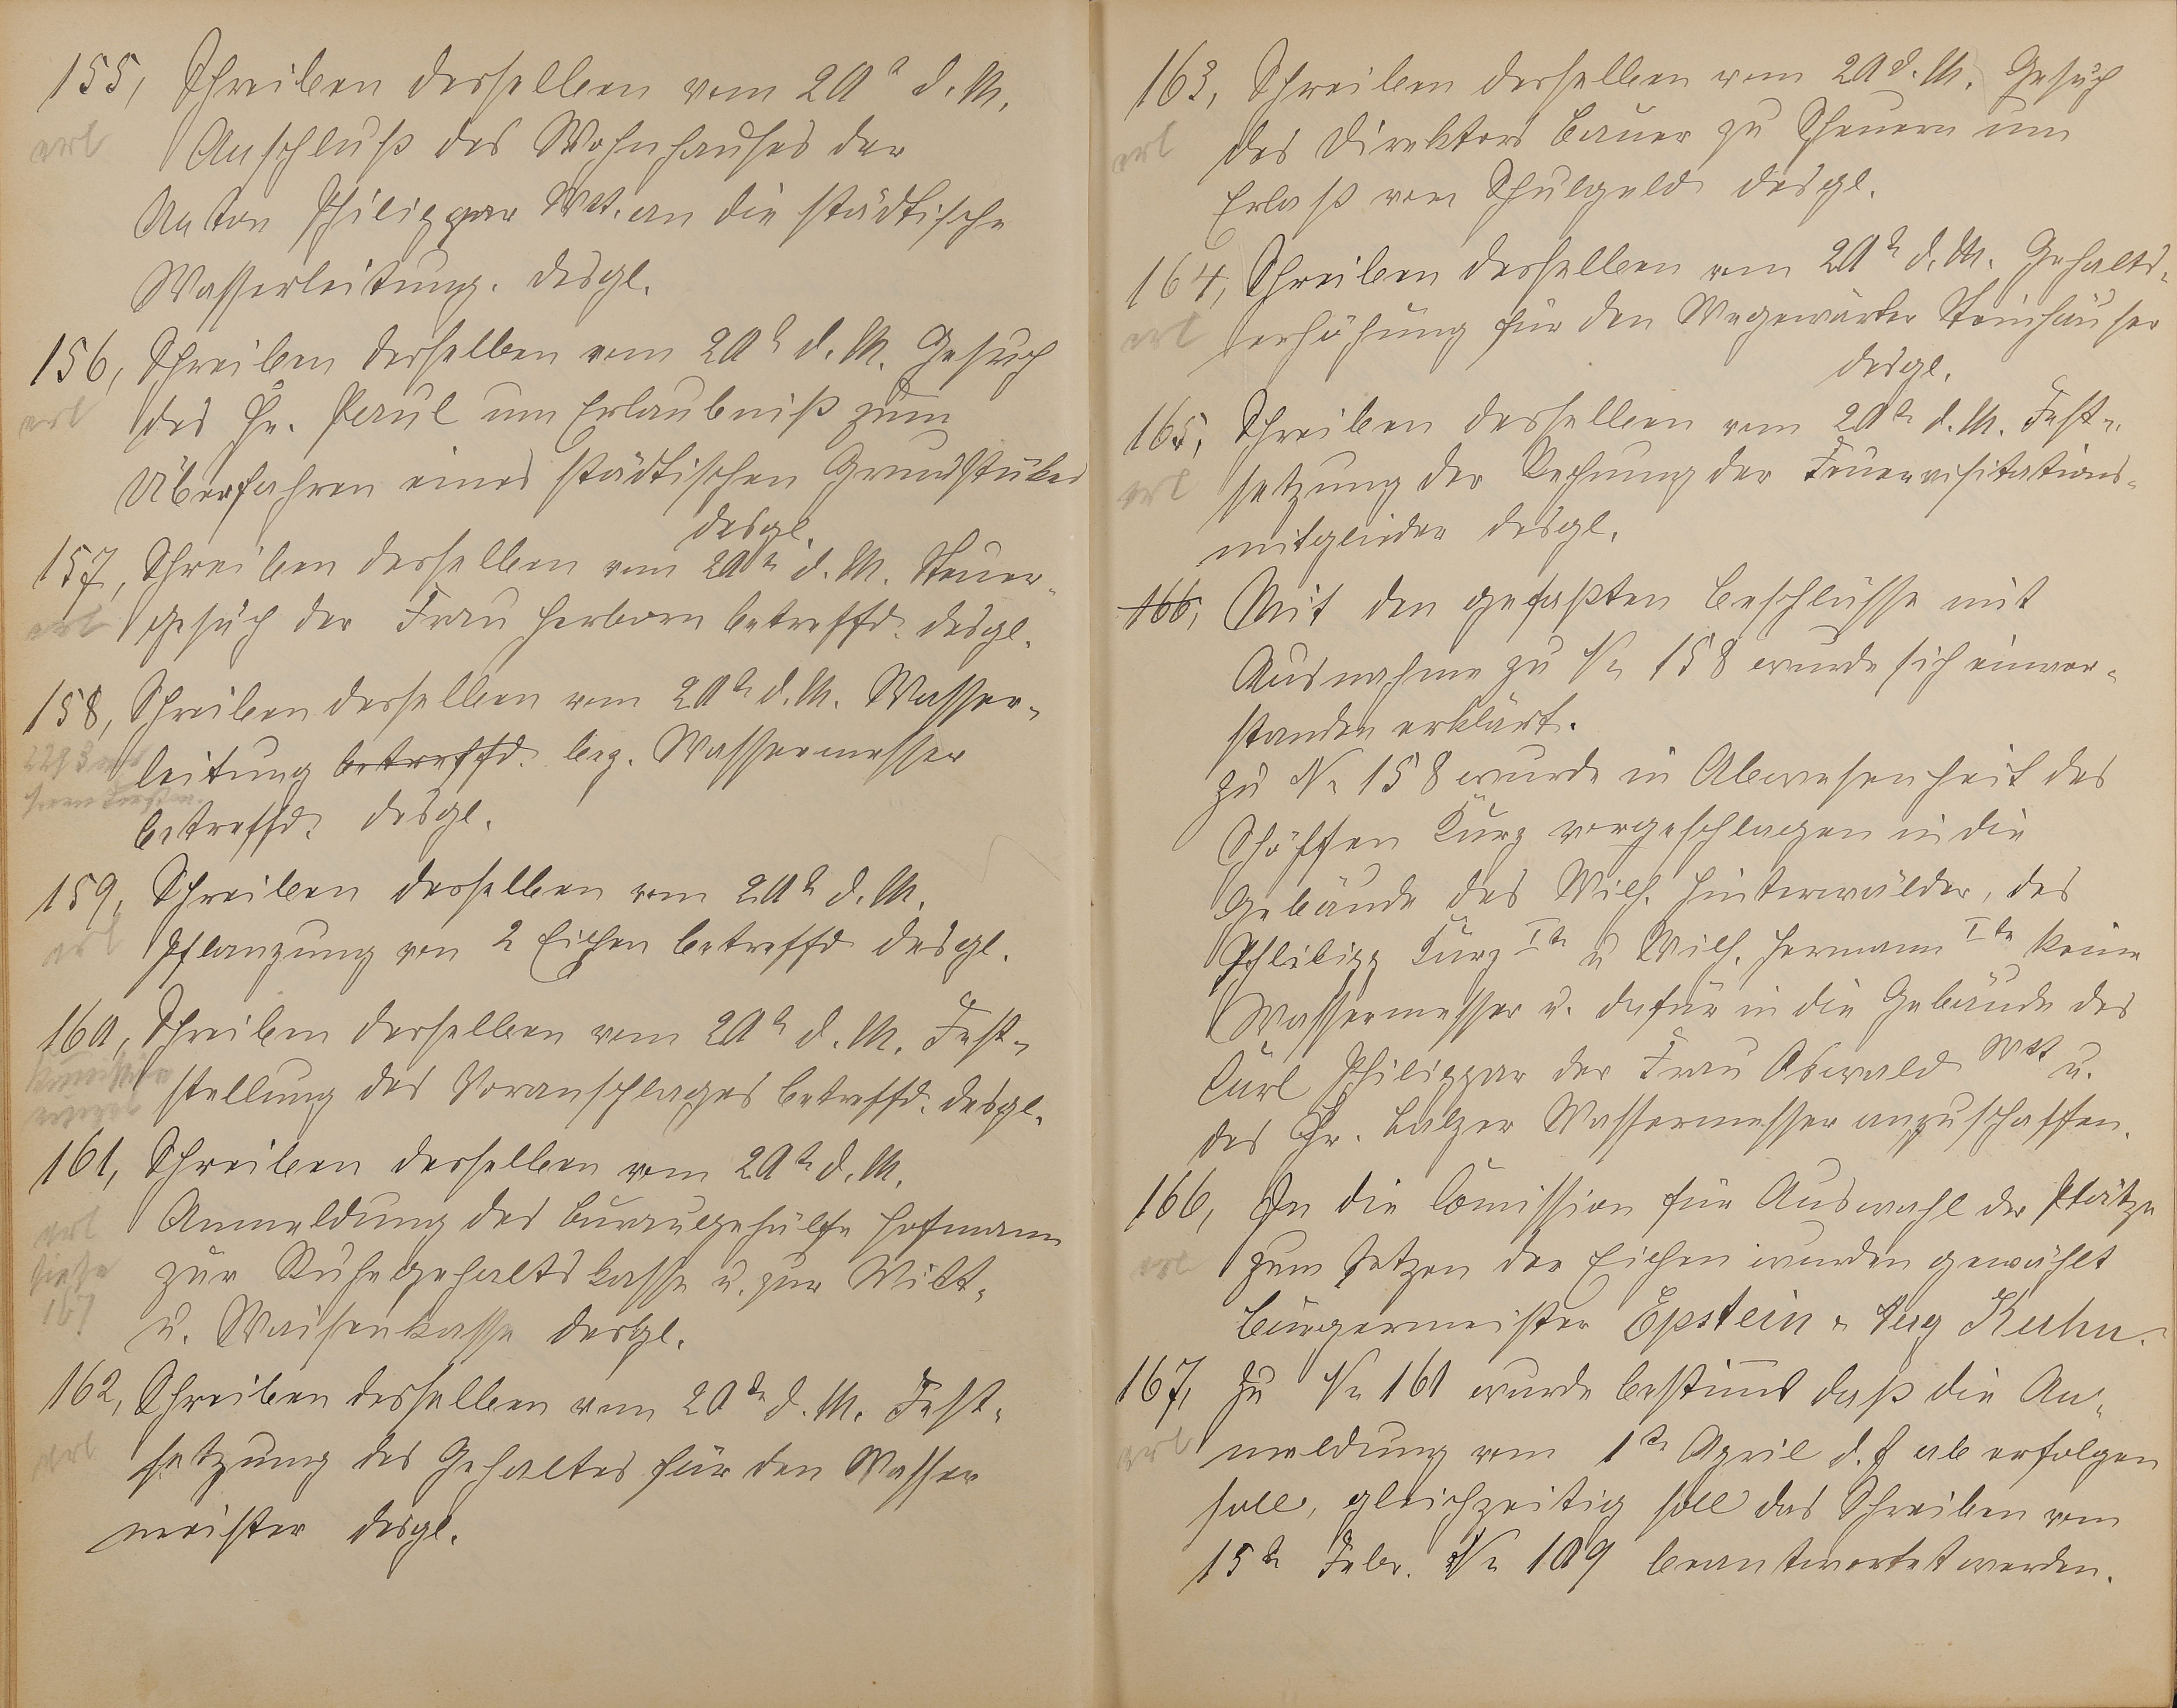 155, Schreiben desselben vom 20t d. M.
erl
Anschluß des Wohnhauses der
Anton Philippar Wtt. an die städtische
Wasserleitung. desgl.
156, Schreiben desselben vom 20t d. M. Gesuch
erl
des Hr. Paul um Erlaubniß zum
Überfahren eines städtischen Grundstükes
desgl.
157, Schreiben desselben vom 20tn d. M. Steuer-
erl
gesuch der Frau Herborn betreffd. desgl.
158, Schreiben desselben vom 20tn d. M. Wasser-
leitung betreffd. bez. Wassermesser
betreffd. desgl.
159, Schreiben desselben vom 20tn d. M.
erl
Pflanzung von 2 Eichen betreffd desgl.
160, Schreiben desselben vom 20tn d. M. Fest-
stellung des Voranschlages betreffd. desgl.
161, Schreiben desselben vom 20tn d. M.
Anmeldung des Bureaugehülfe Hofmann
erl
zur Ruhegehaltskasse u. zur Witt-
siehe
167
u. Waisenkasse desgl.
162, Schreiben desselben vom 20tn d. M. Fest-
erl
setzung des Gehaltes für den Wasser
meister desgl.
163, Schreiben desselben vom 20 d. M. Gesuch
erl
des Direktors Bauer zu Scheuern um
Erlaß von Schulgeld desgl.
164, Schreiben desselben vom 20tn d. M. Gehalts-
erl
erhöhung für den Wegewärter Steinhäuser
desgl.
165, Schreiben desselben vom 20tn d. M. Fest-
erl
setzung der Rechnung der Feuervisitations-
mitglieder desgl.
166, Mit den gefaßten Beschlüsse mit
Ausnahme zu No 158 wurde sich einver-
standen erklärt.
zu No 158 wurde in Abwesenheit des
Schöffen Kurz vorgeschlagen in die
Gebäude des Wilh. Hinterwälder, des
Philipp Kurz Itn u Wilh. Hermann Itn keine
Wassermesser u. dafür in die Gebäude des
Carl Philippar der Frau Oswald Wtt u.
des Chr. Balzer Wassermesser anzuschaffen.
166, In die Comission für Auswahl der Plätze
erl
zum Setzen der Eichen wurden gewählt
Bürgermeister Epstein u Aug Kuhn.
167, Zu No 161 wurde bestimt daß die An-
erl
meldung vom 1tn April d. J ab erfolgen
soll, gleichzeitig soll das Schreiben vom
15tn Febr. No 109 beantwortet werden.